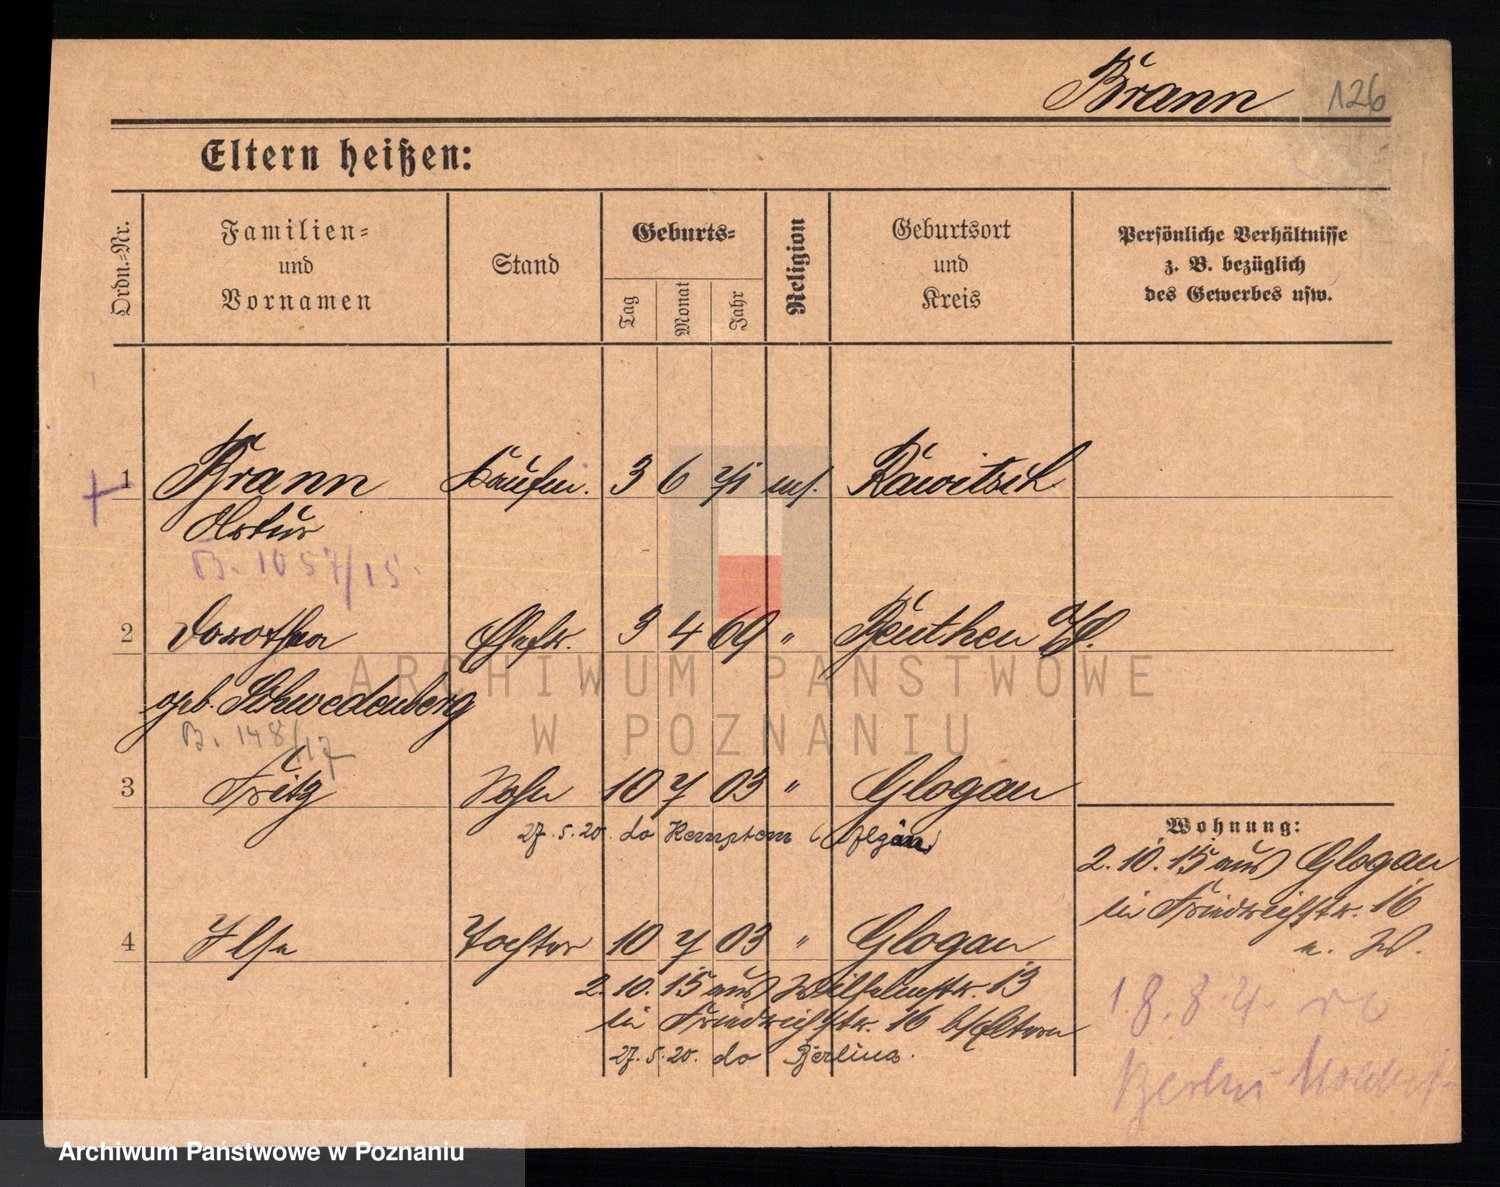 Brann 126
Eltern heißen:
Ordn.-Nr.
Familien-
und
Vornamen
Stand
Geburts-
Tag
Monat
Jahr
Religion
Geburtsort
und
Kreis
Persönliche Verhältnisse
z. B. bezüglich
des Gewerbes usw.
1 Brann Kaufm. 3 6 71 mos. Rawitsch
Artur
B. 1057/15.
2 Dorothea Ehefr. 3 4 69 " Beuthen
geb. Schwedenberg
B. 148/17
3 Fritz Sohn 10 7 03 " Glogau
27.5.20. do Kempten
Wohnung:
2.10.15 aus Glogau
in Friedrichstr. 16
4 Ilse Tochter 10 7 03 " Glogau
2.10.15 aus Wilhelmstr. 13
in Friedrichstr. 16 b/Eltern
27.5.20. do Berlina.
Berlin
ARCHIWUM PAŃSTWOWE
W POZNANIU
Archiwum Państwowe w Poznaniu